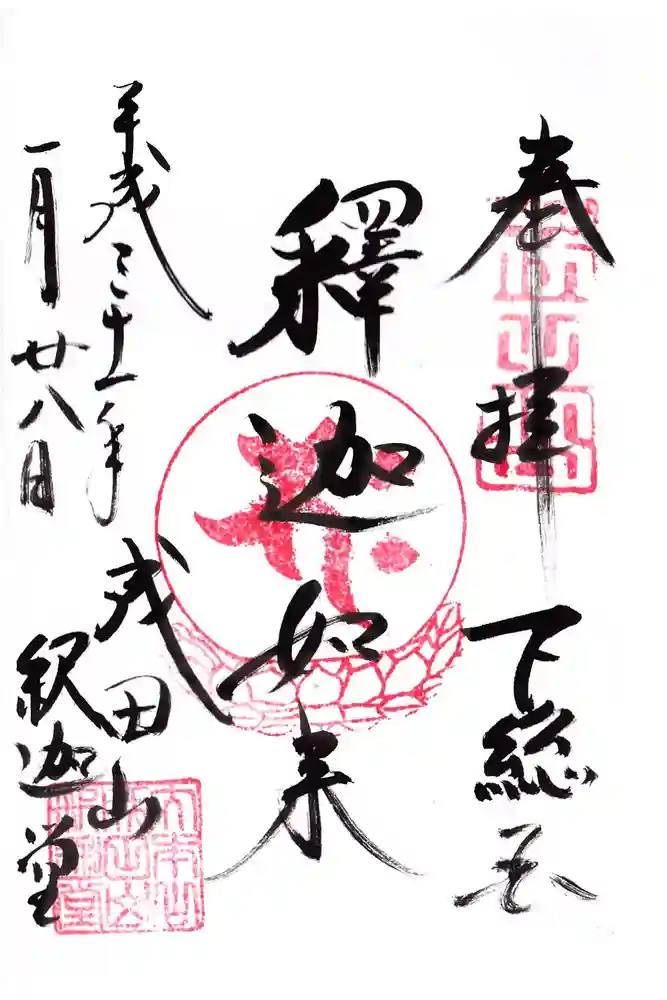 奉拝 下総国
釋迦如来
平成三十一年
一月廿八日
成田山
釈迦堂